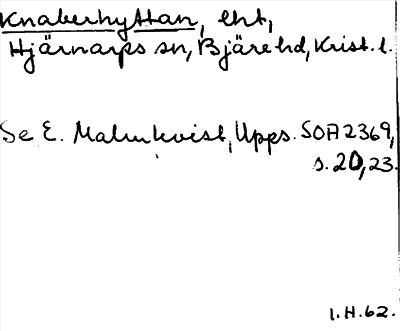 Knaberhyttan, lht,
Hjärnarps sn, Bjäre hd, Krist. l.
Se E. Malmkvist, Upps. SOA 2369,
s. 20, 23.
1.H.62.